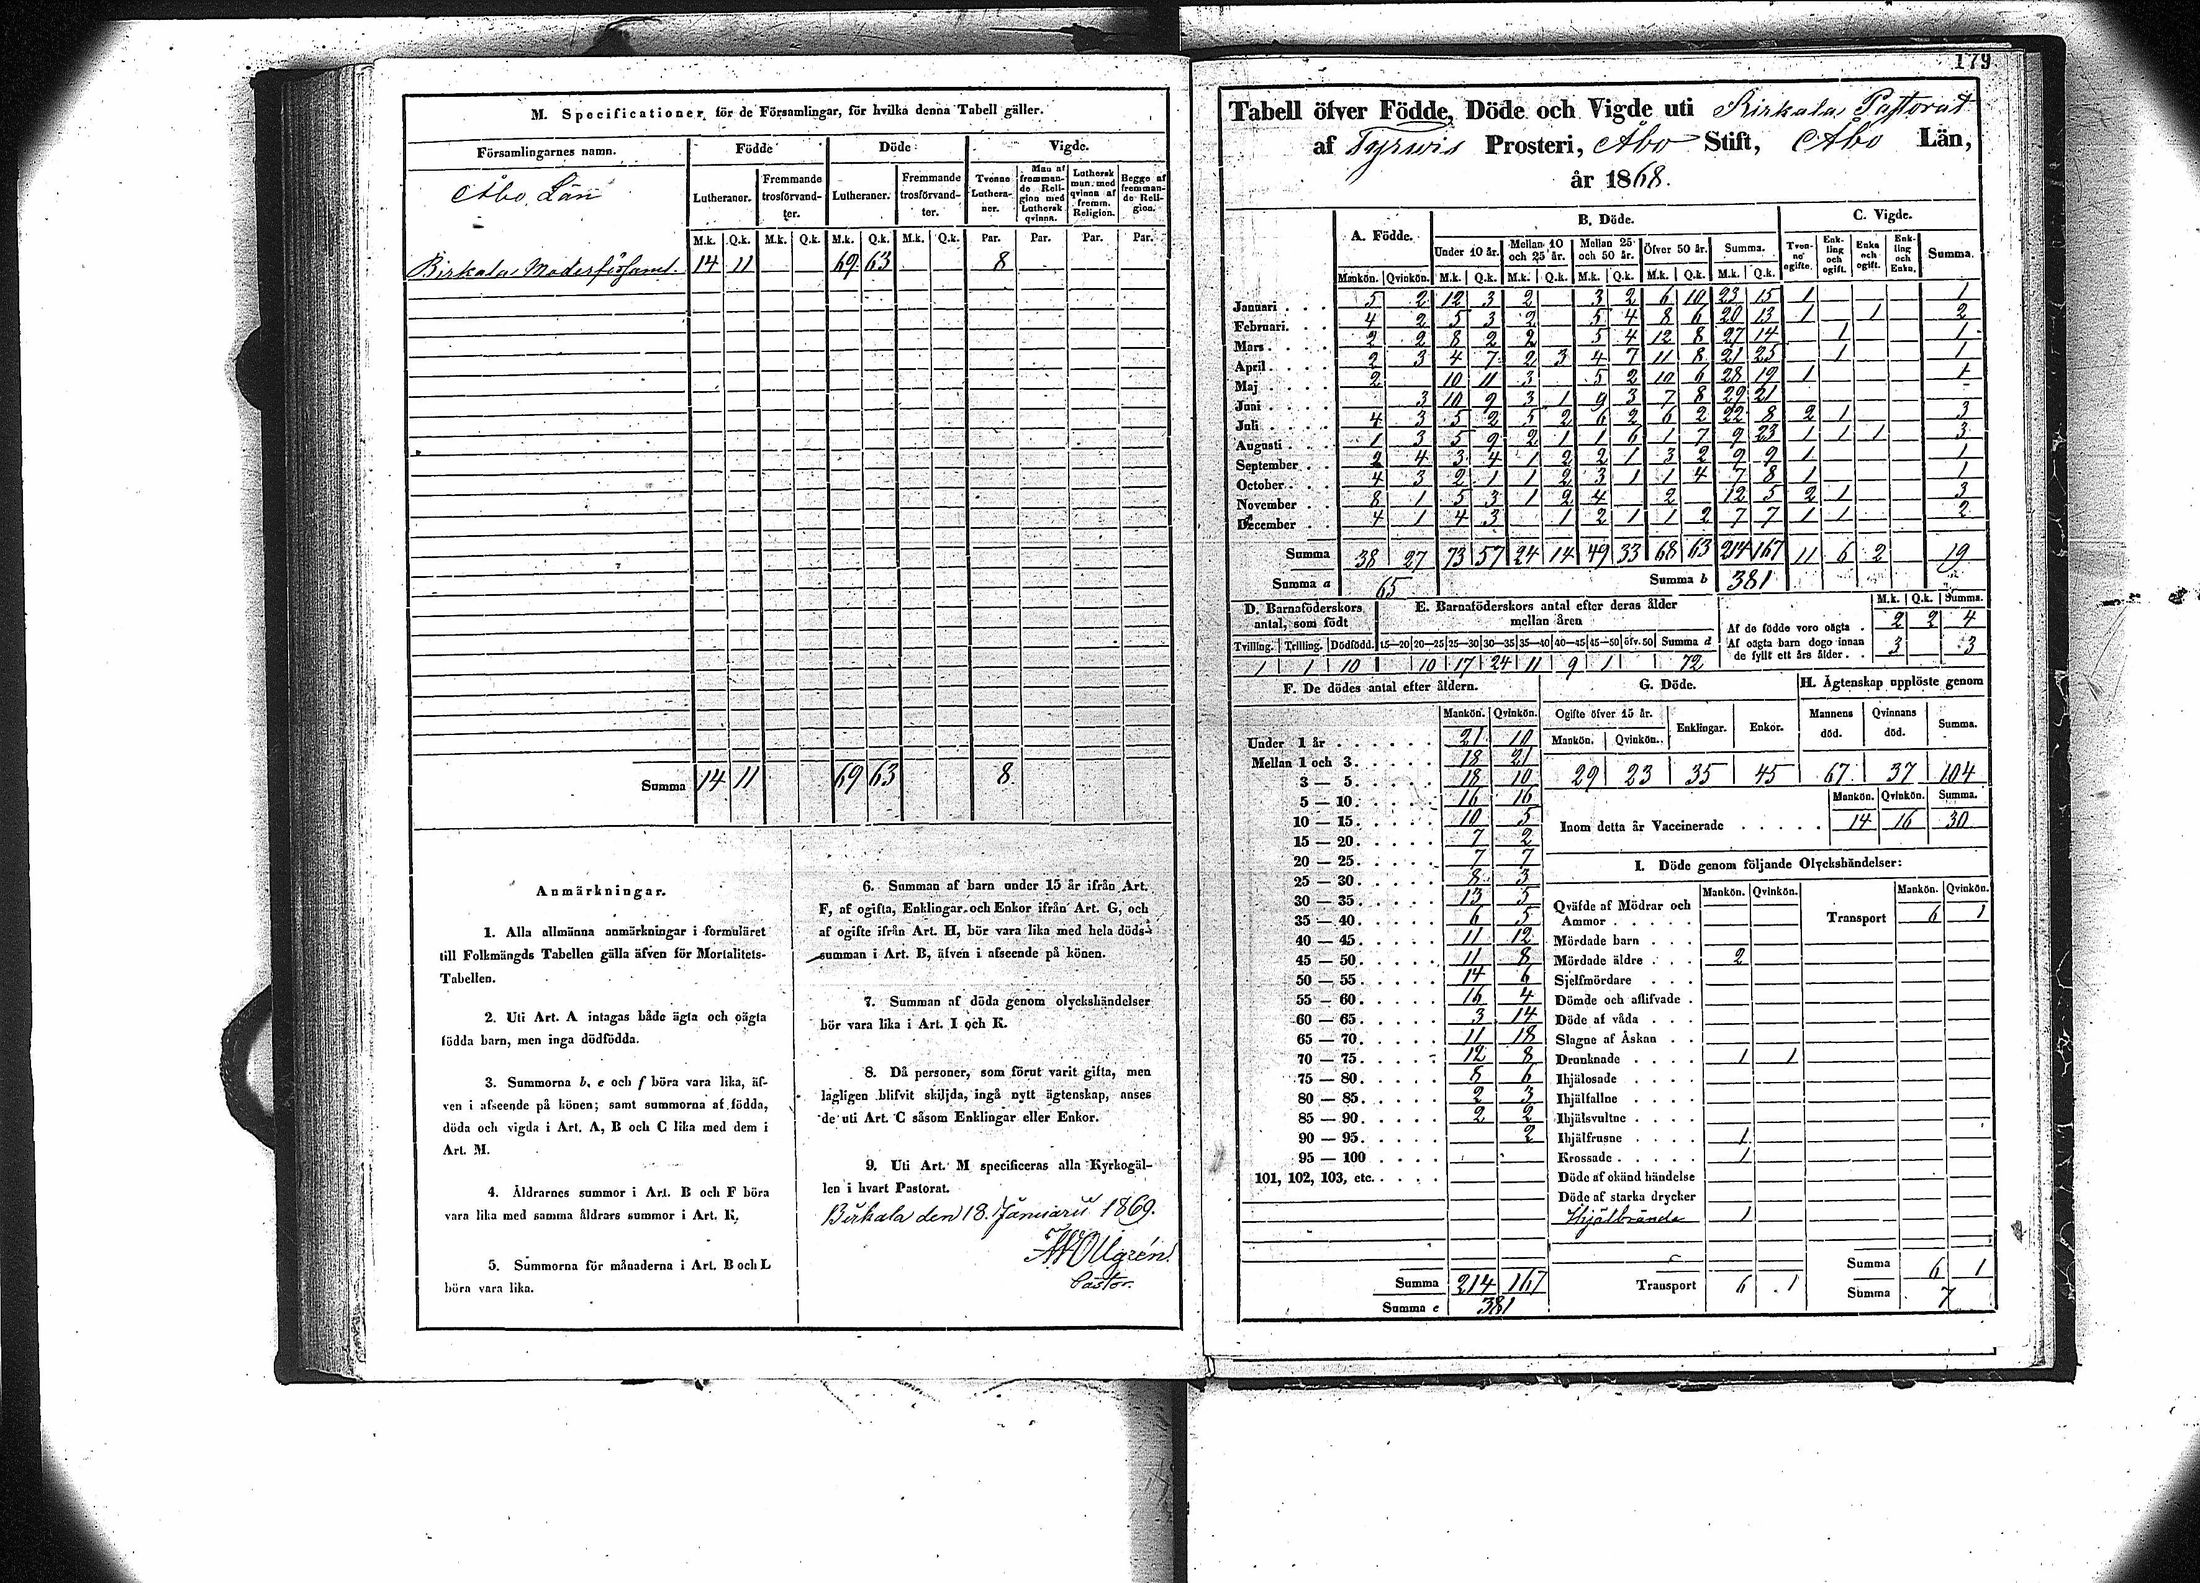 M. Specificationer för de Församlingar, för hvilka denna Tabell gäller.
Församlingarnes namn. Födde Döde Vigde.
Lutheraner. Fremmande trosförvandter. Lutheraner. Fremmande trosförvandter. Tvenne Lutheraner. Man af fremmande Religion med Luthersk qvinna. Luthersk man med qvinna af fremm. Religion. Begge af fremmande Religion.
Åbo Län
M.k. Q.k. M.k. Q.k. M.k. Q.k. M.k. Q.k. Par. Par. Par. Par.
Birkala Moderförsaml. 14 11 69 63 8
Summa 14 11 69 63 8.
Anmärkningar.
1. Alla allmänna anmärkningar i formuläret
till Folkmängds Tabellen gälla äfven för Mortalitets-
Tabellen.
2. Uti Art. A intagas både ägta och oägta
födda barn, men inga dödfödda.
3. Summorna b, e och f böra vara lika, äf-
ven i afseende på könen; samt summorna af födda,
döda och vigda i Art. A, B och C lika med dem i
Art. M.
4. Åldrarnes summor i Art. B och F böra
vara lika med samma åldrars summor i Art. K.
5. Summorna för månaderna i Art. B och L
böra vara lika.
6. Summan af barn under 15 år ifrån Art.
F, af ogifta, Enklingar och Enkor ifrån Art. G, och
af ogifte ifrån Art. H, bör vara lika med hela döds-
summan i Art. B, äfven i afseende på könen.
7. Summan af döda genom olyckshändelser
bör vara lika i Art. I och K.
8. Då personer, som förut varit gifta, men
lagligen blifvit skiljda, ingå nytt ägtenskap, anses
de uti Art. C såsom Enklingar eller Enkor.
9. Uti Art. M specificeras alla Kyrkogäl-
len i hvart Pastorat.
Birkala den 18. Januarii 1869.
Pastor.
179
Tabell öfver Födde, Döde och Vigde uti Birkala Pastorat
af Tyrwis Prosteri, Åbo Stift, Åbo Län,
år 1868.
A. Födde. B. Döde. C. Vigde.
Under 10 år. Mellan 10 och 25 år. Mellan 25 och 50 år. Öfver 50 år. Summa. Tvenne ogifte. Enkling och ogift. Enka och ogift. Enkling och Enka. Summa.
Mankön. Qvinkön. M.k. Q.k. M.k. Q.k. M.k. Q.k. M.k. Q.k. M.k. Q.k.
Januari . . . 5 2 12 3 2 3 2 6 10 23 15 1 1
Februari. . . 4 2 5 3 2 5 4 8 6 20 13 1 1 2
Mars . . . . 2 2 8 2 2 5 4 12 8 27 14 1 1
April . . . . 2 3 4 7 2 3 4 7 11 8 21 25 1 1
Maj . . . . 2 10 11 3 5 2 10 6 28 19 1 1
Juni . . . . 3 10 9 3 1 9 3 7 8 29 21 -
Juli . . . . 4 3 5 2 5 2 6 2 6 2 22 8 2 1 3
Augusti . . . 1 3 5 9 2 1 1 6 1 7 9 23 1 1 1 3
September . . 2 4 3 4 1 2 2 1 3 2 9 9 1 1
October . . . 4 3 2 1 1 2 3 1 1 4 7 8 1 1
November . . 8 1 5 3 1 2 4 2 12 5 2 1 3
December . . 4 1 4 3 1 2 1 1 2 7 7 1 1 2
Summa 38 27 73 57 24 14 49 33 68 63 214 167 11 6 2 19
Summa a 65 Summa b 381
D. Barnaföderskors antal, som födt
Tvilling. Trilling. Dödfödd.
1 1 10
E. Barnaföderskors antal efter deras ålder
mellan åren
15—20 20—25 25—30 30—35 35—40 40—45 45—50 öfv. 50 Summa d
10 17 24 11 9 1 72
M.k. Q.k. Summa.
Af de födde voro oägta . 2 2 4
Af oägta barn dogo innan
de fyllt ett års ålder . . 3 3
F. De dödes antal efter åldern.
Mankön. Qvinkön.
Under 1 år . . . . . . 21 10
Mellan 1 och 3. . . . . 18 21
3 — 5. . . . . 18 10
5 — 10. . . . . 16 16
10 — 15. . . . . 10 5
15 — 20. . . . . 7 2
20 — 25. . . . . 7 7
25 — 30. . . . . 8 3
30 — 35. . . . . 13 5
35 — 40. . . . . 6 5
40 — 45. . . . . 11 12
45 — 50. . . . . 11 8
50 — 55. . . . . 14 6
55 — 60. . . . . 16 4
60 — 65. . . . . 3 14
65 — 70. . . . . 11 18
70 — 75. . . . . 12 8
75 — 80. . . . . 8 6
80 — 85. . . . . 2 3
85 — 90. . . . . 2 2
90 — 95. . . . . 2
95 — 100 . . . .
101, 102, 103, etc. . . . .
Summa 214 167
Summa e 381
G. Döde.
Ogifte öfver 15 år. Enklingar. Enkor.
Mankön. Qvinkön.
29 23 35 45
H. Ägtenskap upplöste genom
Mannens död. Qvinnans död. Summa.
67 37 104
Mankön. Qvinkön. Summa.
Inom detta år Vaccinerade . . . . . 14 16 30
I. Döde genom följande Olyckshändelser:
Mankön. Qvinkön. Mankön. Qvinkön.
Qväfde af Mödrar och
Ammor . . . . . Transport 6 1
Mördade barn . . .
Mördade äldre . . . 2
Sjelfmördare . . .
Dömde och aflifvade .
Döde af våda . . .
Slagne af Åskan . .
Drunknade . . . . 1 1
Ihjälosade . . . .
Ihjälfallne . . . .
Ihjälsvultne . . . .
Ihjälfrusne . . . . 1
Krossade. . . . . 1
Döde af okänd händelse
Döde af starka drycker
Ihjälbrände 1
Summa 6 1
Transport 6 1
Summa 7